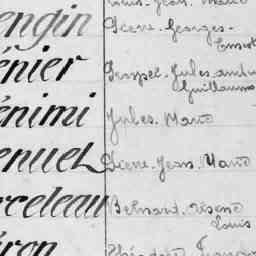 engin
Pierre. Georges.
Ernest
énier
Prosper. Jules. André
Guillaume
énimi
Jules. Marie
enuel
Pierre. Jean. Marie
rceleau
Bernard. René
Louis
éron
Théodore François